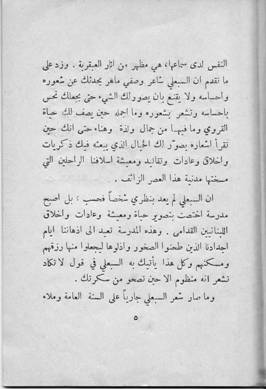 النفس لدى سماعها، هي مظهر من آثار العبقرية . وزد على
ما تقدم ان السبعلي شاعر وصفي ماهر يحدثك عن شعوره
واحساسه ولا يقنع بان يصور لك الشيء حتى يجعلك تحس
باحساسه وتشعر بشعوره وما اجمله حين يصف لك حياة
القروي وما فيها من جمال ولذة وهناء حتى انك حين
تقرأ اشعاره يصور لك الخيال الذي يبعثه فيك ذكريات
واخلاق وعادات وتقاليد ومعيشة اسلافنا الراحلين التي
مسختها مدنية هذا العصر الزائف .
ان السبعلي لم يعد بنظري شخصاً فحسب ؛ بل اصبح
مدرسة اختصت بتصوير حياة ومعيشة وعادات واخلاق
اللبنانيين القدامى . وهذه المدرسة تعيد الى اذهاننا ايام
اجدادنا الذين طحنوا الصخور واذلوها ليجعلوا منها رزقهم
ومسكنهم وكل هذا يأتيك به السبعلي في قول لا تكاد
تشعر انه منظوم الا حين تصحو من سكرتك .
وما صار شعر السبعلي جارياً على السنة العامة وملاء
٥